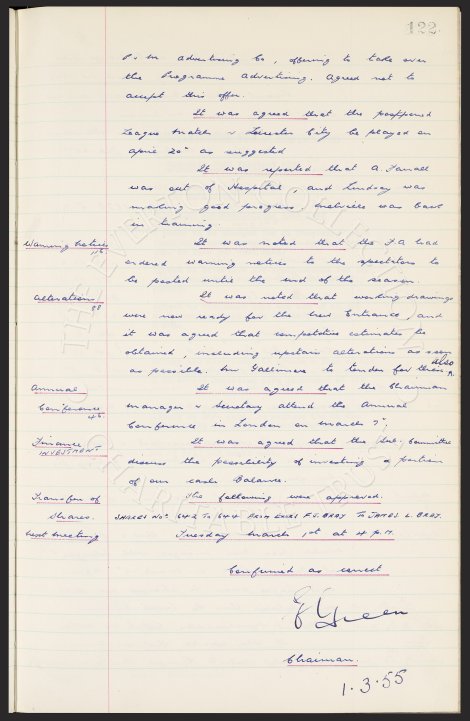 122
P & M Advertising Co, offering to take over
the Programme Advertising. Agreed not to
accept this offer.
It was agreed that the postponed
League Match v Leicester City be played on
April 20th as suggested
It was reported that A. Farrall
was out of Hospital, and Lindsay was
making good progress. Melville was back
in training.
Warning Notices
It was noted that the F A had
ordered warning notices to the spectators to
be posted until the end of the season.
Alterations
88
It was noted that working drawings
were now ready for the new Entrance, and
it was agreed that competitive estimates be
obtained, including upstairs alterations as soon
as possible. Mr Gallimore to tender for them also
Annual
Conference
46
It was agreed that the Chairman
Manager & Secretary attend the Annual
Conference in London on March 7th;
Finance
INVESTMENT
It was agreed that the Sub. Committee
discuss the possibility of investing a portion
of our cash Balance.
Transfer of
Shares.
The following were approved.
SHARES Nos 642 TO 644 FROM EXORS F.G. BRDY TO JAMES L. BRDY.
Next Meeting
Tuesday March 1st at 4 P.M.
Confirmed as correct
Green
Chairman.
1.3.55
THE EVERTON COLLECTION
CHARITABLE TRUST